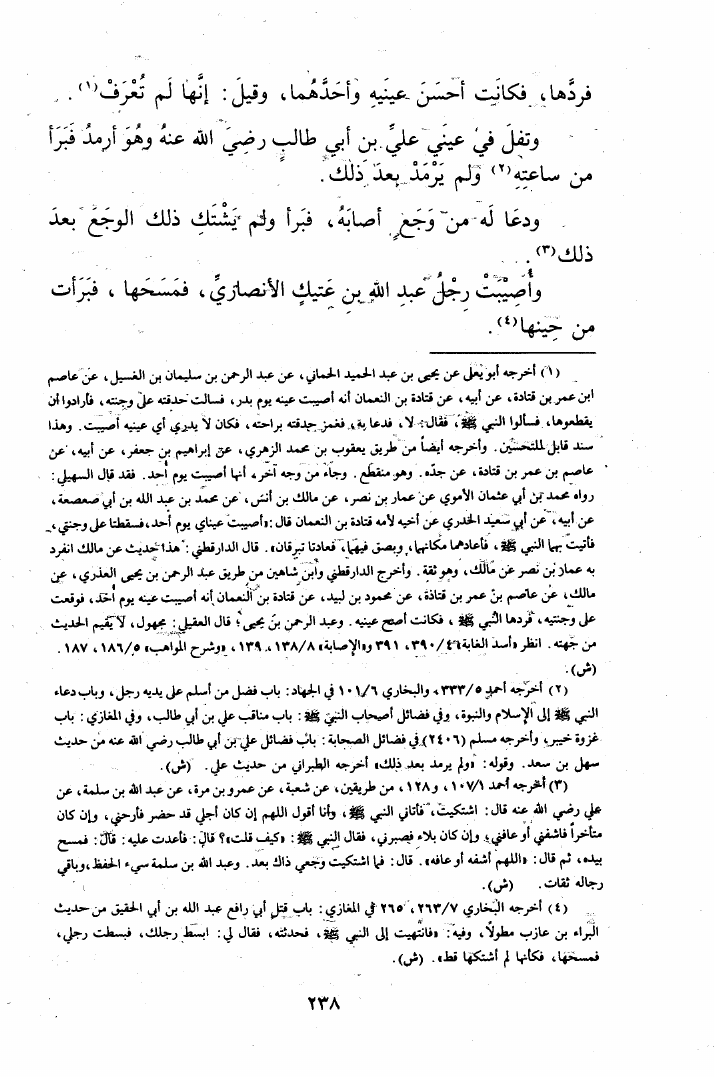 فردَّها، فكانَت أحسَنَ عينَيهِ وأحَدَّهُما، وقيلَ: إنَّها لَم تُعْرَفْ(١).
وتفلَ في عينَي عليِّ بن أبي طالبٍ رضيَ الله عنهُ وهُوَ أرمدُ فَبَرَأ
من ساعتِهِ(٢) ولم يَرْمَدْ بعدَ ذلك.
ودعَا لَه من وَجَعٍ أصابَهُ، فبَرأ ولم يَشْتَكِ ذلك الوجَعَ بعدَ
ذلك(٣).
وأُصِيْبَتْ رِجْلُ عبدِ اللهِ بنِ عَتيكٍ الأنصاريِّ، فمَسَحَها، فبَرَأت
من حِينها(٤).
(١) أخرجه أبو يعلى عن يحيى بن عبد الحميد الحماني، عن عبد الرحمن بن سليمان بن الغسيل، عن عاصم
ابن عمر بن قتادة، عن أبيه، عن قتادة بن النعمان أنه أصيبت عينه يوم بدر، فسالت حدقته على وجنته، فأرادوا أن
يقطعوها، فسألوا النبي ﷺ، فقال: لا، فدعا به، فغمز حدقته براحته، فكان لا يدري أي عينيه أصيبت. وهذا
سند قابل للتحسين. وأخرجه أيضاً من طريق يعقوب بن محمد الزهري، عن إبراهيم بن جعفر، عن أبيه، عن
عاصم بن عمر بن قتادة، عن جدّه. وهو منقطع. وجاء من وجه آخر، أنها أصيبت يوم أحد. فقد قال السهيلي:
رواه محمد بن أبي عثمان الأموي عن عمار بن نصر، عن مالك بن أنس، عن محمد بن عبد الله بن أبي صعصعة،
عن أبيه، عن أبي سعيد الخدري عن أخيه لأمه قتادة بن النعمان قال: «أصيبت عيناي يوم أحد، فسقطتا على وجنتي،
فأتيت بهما النبي ﷺ، فأعادهما مكانهما، وبصق فيهما، فعادتا تبرقان». قال الدارقطني: هذا حديث عن مالك انفرد
به عمار بن نصر عن مالك، وهو ثقة. وأخرج الدارقطني وابن شاهين من طريق عبد الرحمن بن يحيى العذري، عن
مالك، عن عاصم بن عمر بن قتادة، عن محمود بن لبيد، عن قتادة بن النعمان أنه أصيبت عينه يوم أحد، فوقعت
على وجنتيه، فردها النبي ﷺ، فكانت أصح عينيه. وعبد الرحمن بن يحيى؛ قال العقيلي: مجهول، لا يقيم الحديث
من جهته. انظر «أسد الغابة» ٤/٣٩٠، ٣٩١ و«الإصابة» ٨/١٣٨، ١٣٩، و«شرح المواهب» ٥/١٨٦، ١٨٧.
(ش).
(٢) أخرجه أحمد ٥/٣٣٣، والبخاري ٦/١٠١ في الجهاد: باب فضل من أسلم على يديه رجل، وباب دعاء
النبي ﷺ إلى الإسلام والنبوة، وفي فضائل أصحاب النبي ﷺ: باب مناقب علي بن أبي طالب، وفي المغازي: باب
غزوة خيبر، وأخرجه مسلم (٢٤٠٦) في فضائل الصحابة: باب فضائل علي بن أبي طالب رضي الله عنه من حديث
سهل بن سعد. وقوله: «ولم يرمد بعد ذلك» أخرجه الطبراني من حديث علي. (ش).
(٣) أخرجه أحمد ١/١٠٧، و١٢٨، من طريقين، عن شعبة، عن عمرو بن مرة، عن عبد الله بن سلمة، عن
علي رضي الله عنه قال: اشتكيت، فأتاني النبي ﷺ، وأنا أقول اللهم إن كان أجلي قد حضر فأرحني، وإن كان
متأخراً فاشفني أو عافني، وإن كان بلاء فصبرني، فقال النبي ﷺ: «كيف قلت»؟ قال: فأعدت عليه: قال: فمسح
بيده، ثم قال: «اللهم أشفه أو عافه». قال: فما اشتكيت وجعي ذاك بعد. وعبد الله بن سلمة سيء الحفظ، وباقي
رجاله ثقات. (ش).
(٤) أخرجه البخاري ٧/٢٦٣، ٢٦٥ في المغازي: باب قتل أبي رافع عبد الله بن أبي الحقيق من حديث
البراء بن عازب مطولاً، وفيه: «فانتهيت إلى النبي ﷺ، فحدثته، فقال لي: ابسط رجلك، فبسطت رجلي،
فمسحها، فكأنها لم أشتكها قط». (ش).
٢٣٨